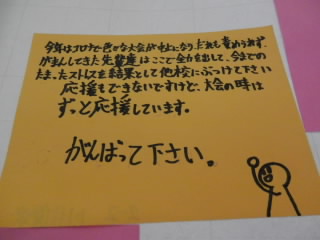 今年はコロナで色々な大会が中止になり、だれも責めうれず、
がまんしてきた先輩達はここで全力を出して、今までの
たまったストレスを結果として他校にぶつけて下さい
応援もできないですけど、大会の時は
ずっと応援しています。
がんばって下さい。